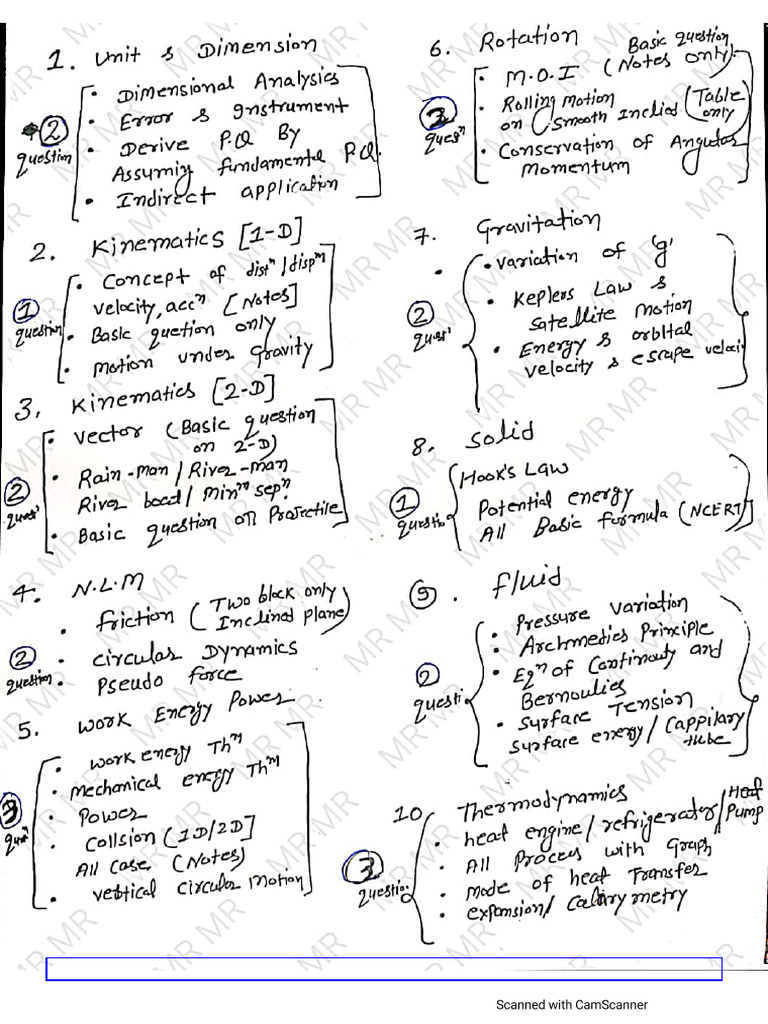 1. Unit & Dimension
② question
• Dimensional Analysics
• Error & Instrument
• Derive P.Q By
Assuming fundamental P.Q.
• Indirect application
2. Kinematics [1-D]
① question
• Concept of distⁿ/dispᵐ
velocity, accⁿ [Notes]
• Basic quetion only
• Motion under Gravity
3. Kinematics [2-D]
② quesⁿ
• Vector (Basic question
on 2-D)
• Rain-man / River-man
River boad / Minᵐ sepⁿ.
• Basic question on Projectile
4. N.L.M
② question
• friction (Two block only
Inclined plane)
• Circular Dynamics
• Pseudo force
5. Work Energy Power
③ quesⁿ
• work energy Thᵐ
• mechanical energy Thᵐ
• Power
• Collsion (1D/2D]
All case (Notes)
• vertical circular Motion
6. Rotation
Basic question
quesⁿ
• M.O.I (Notes only)
• Rolling Motion (Table
on Smooth Inclied only)
• Conservation of Angular
Momentum
7. Gravitation
② quesⁿ
• variation of 'g'
• Keplers Law &
satellite motion
• Energy & orbital
velocity & escape veloci
8. Solid
① questio
Hook's Law
Potential energy
All Basic formula (NCERT)
⑨. fluid
② questio
• Pressure variation
• Archmedies Principle
• Eqⁿ of Continouty and
Bernoulies
• Surface Tension
surface energy / Cappilary
tube
10 Thermodynamics
③ questio
• heat engine / refrigerator / Heat
Pump
• All Process with Graph
• mode of heat Transfer
• expansion / Calorymetry
MR MR
Scanned with CamScanner